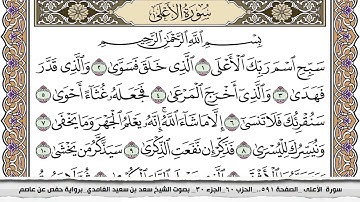 سُورَةُ الأَعْلَى
بِسْمِ اللَّهِ الرَّحْمَٰنِ الرَّحِيمِ
سَبِّحِ اسْمَ رَبِّكَ الْأَعْلَى ١ الَّذِي خَلَقَ فَسَوَّىٰ ٢ وَالَّذِي قَدَّرَ
فَهَدَىٰ ٣ وَالَّذِي أَخْرَجَ الْمَرْعَىٰ ٤ فَجَعَلَهُ غُثَاءً أَحْوَىٰ ٥
سَنُقْرِئُكَ فَلَا تَنسَىٰ ٦ إِلَّا مَا شَاءَ اللَّهُ إِنَّهُ يَعْلَمُ الْجَهْرَ وَمَا يَخْفَىٰ ٧
وَنُيَسِّرُكَ لِلْيُسْرَىٰ ٨ فَذَكِّرْ إِن نَّفَعَتِ الذِّكْرَىٰ ٩ سَيَذَّكَّرُ مَن يَخْشَىٰ ١٠
سورة الأعلى _ الصفحة ٥٩١ _ الحزب ٦٠ _ الجزء ٣٠ _ بصوت الشيخ سعد بن سعيد الغامدي برواية حفص عن عاصم